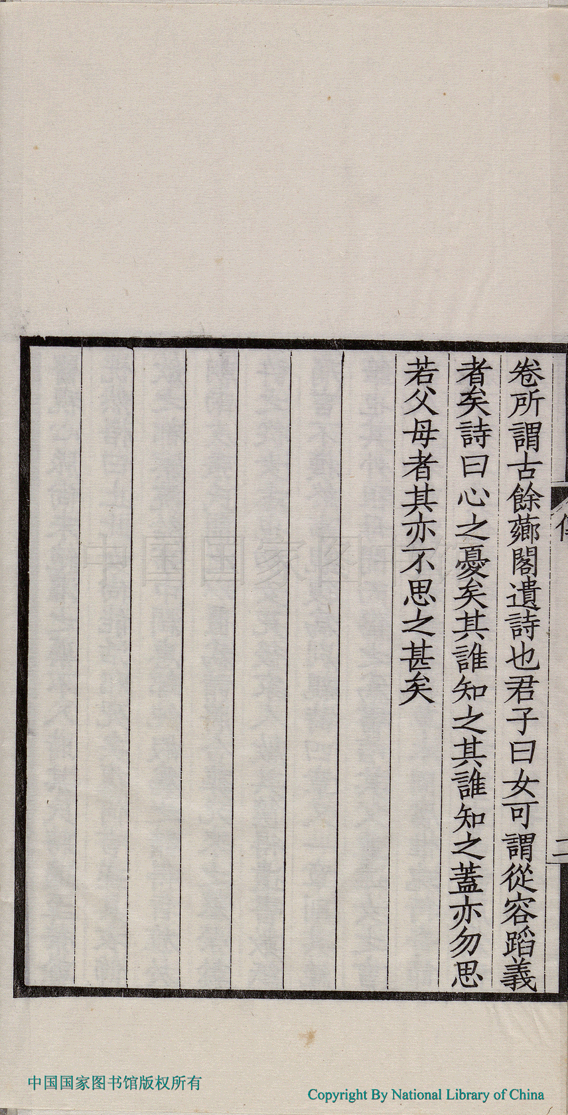 卷所謂古餘薌閣遺詩也君子曰女可謂從容蹈義
者矣詩曰心之憂矣其誰知之其誰知之蓋亦勿思
若父母者其亦不思之甚矣
二
中国国家图书馆版权所有
Copyright By National Library of China